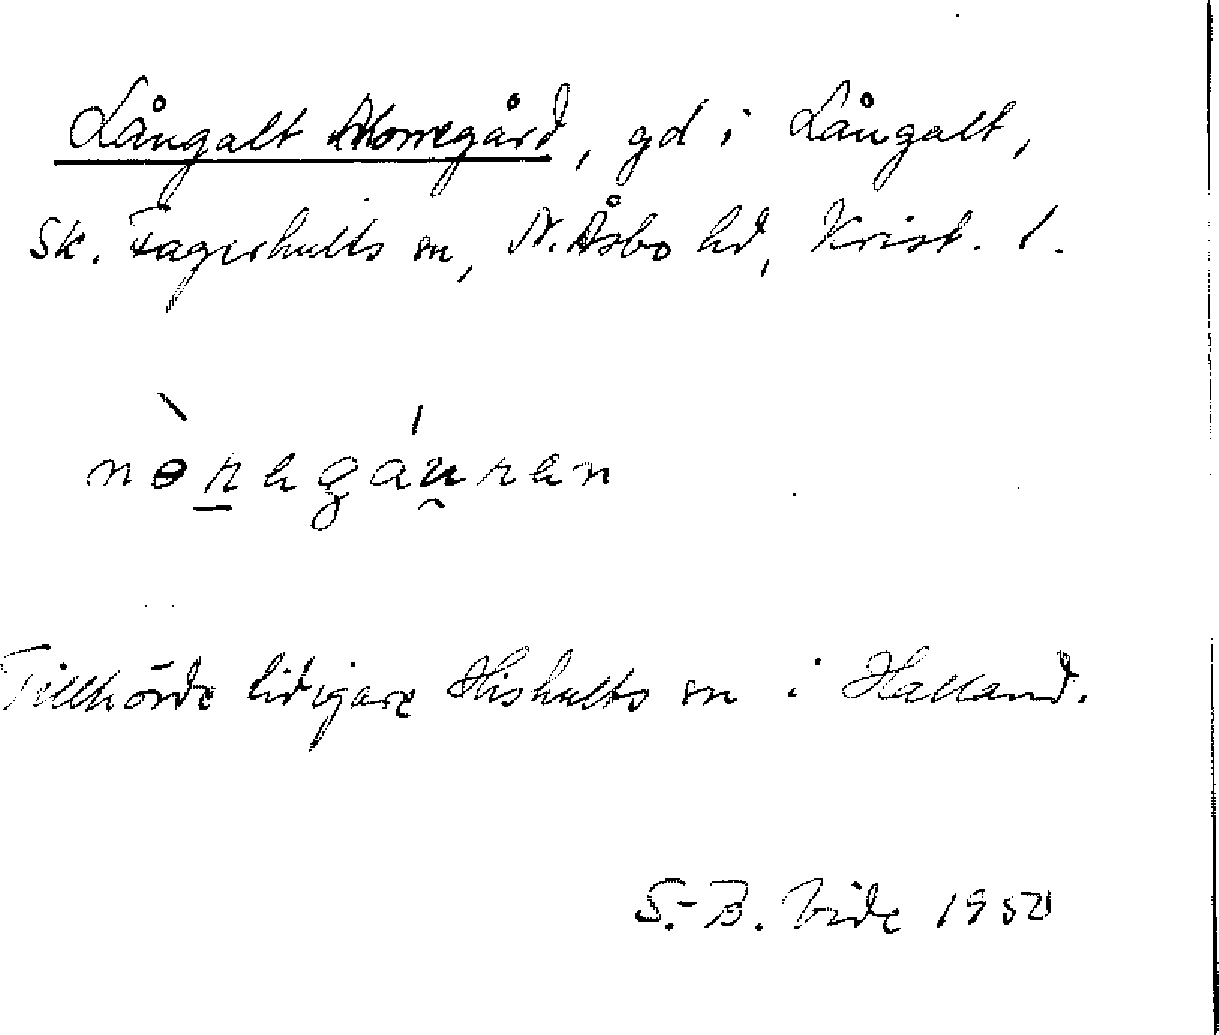 Långalt Norregård, gd i Långalt,
Sk. Fagerhults sn, N. Åsbo hd, Krist. l.
nɵ̀ragáu̯ran
Tillhörde tidigare Hishults sn i Halland.
S.-B. Vide 1950